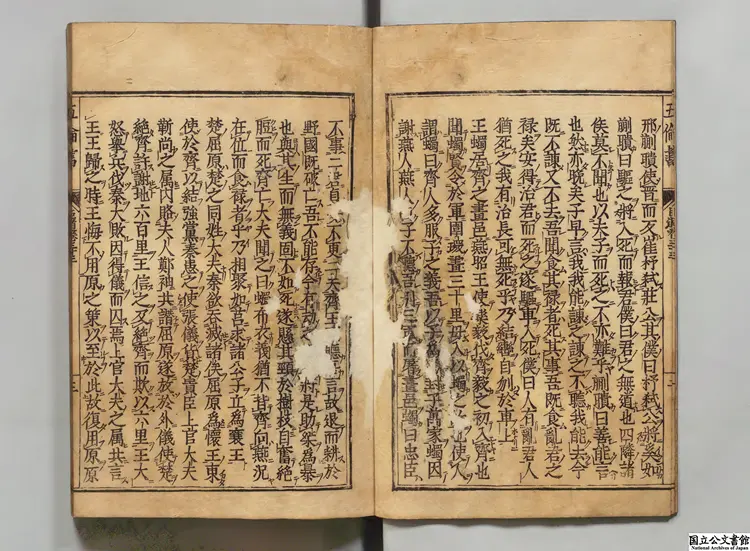 五倫書
邢蒯瞶使晋而反崔杼弑莊公其僕曰杼弑公將奚如
蒯瞶曰驅之將入死而報君僕曰君之無道也四隣諸
侯莫不聞也以夫子而死之不亦難乎蒯瞶曰善能言
也然亦晚矣子早言我我能諫之諫之不聽我能去今
既不諫又不去吾聞食其禄者死其事吾既食亂君之
禄矣安得治君而死之遂驅車入死僕曰人有亂君人
猶死之我有治長可無死乎乃結轡自刎於車上
王蠋居齊之畫邑燕昭王使樂毅伐齊毅之初入齊也
聞蠋賢令於軍圍環畫三十里毋入以蠋之故也使人
謂蠋曰齊人多服子之義吾以子為封子萬家蠋因
謝燕人燕人曰子不聽吾引三軍而屠畫邑蠋曰忠臣
不事二君貞不更二夫齊王聽言故退而耕於
野國既破亡吾不能存今又劫將是助桀為暴
也與其生而無義固不如死遂懸其頸於樹枝自奮絶
脰而死齊亡大夫聞之曰蠋布衣義猶不背齊向燕況
在位而食祿者乎乃相聚如莒求諸公子立為襄王
楚屈原楚之同姓大夫秦欲吞滅諸侯屈原為懷王東
使於齊以結強黨秦患之使張儀貨楚貴臣上官大夫
靳尚之属内賂夫人鄭袖共譖屈原遂放於外儀使楚
絶齊許謝地六百里王信之反絶齊而欺以六里王大
怒舉兵伐秦大敗因得儀而囚焉上官大夫之属共言
王王歸之時王悔不用原之策以至於此故復用原原
五倫書
国立公文書館
National Archives of Japan